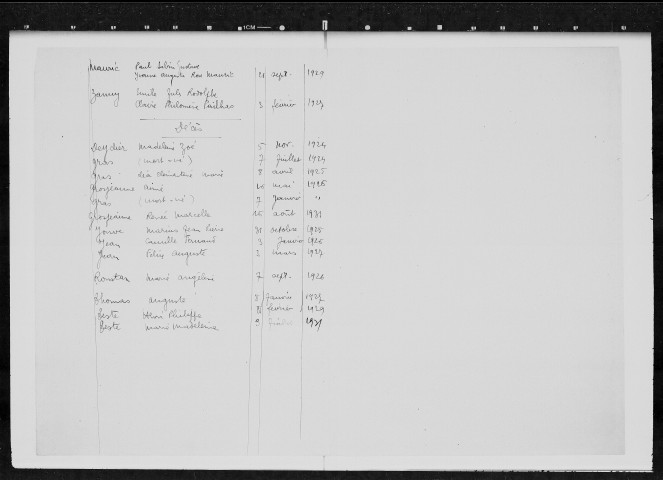 1CM
Mauric Paul
Yvonne Auguste Rose Mauric 21 sept. 1929
Zanny Emile Jules Rodolphe
Claire Philomène 3 février 1927
Décès
Deydier Madeleine Zoé 5 nov. 1924
Gras (mort-né) 7 juillet 1924
Gris Clémentine Marie 8 août 1925
Grosjeanne Aimé 10 mai 1926
Gras (mort-né) 7 janvier "
Grosjeanne Renée Marcelle 15 août 1931
Jouve Marius Jean 31 octobre 1925
Jean Camille Fernand 3 janvier 1926
Jean Félix Auguste 2 mars 1927
Roustan Marie Angéline 7 sept. 1928
Thomas Auguste 8 janvier 1927
Teste Philippe 18 février 1929
Teste Marie Madeleine 9 1931